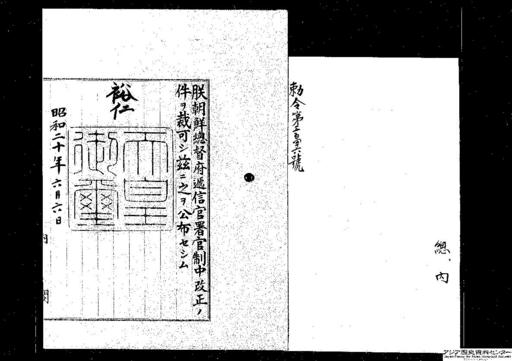 總、內
勅令第六號
朕朝鮮總督府遞信官署官制中改正ノ
件ヲ裁可シ茲ニ之ヲ公布セシム
裕仁
天皇
御璽
昭和二十年六月六日
內閣
アジア歴史資料センター